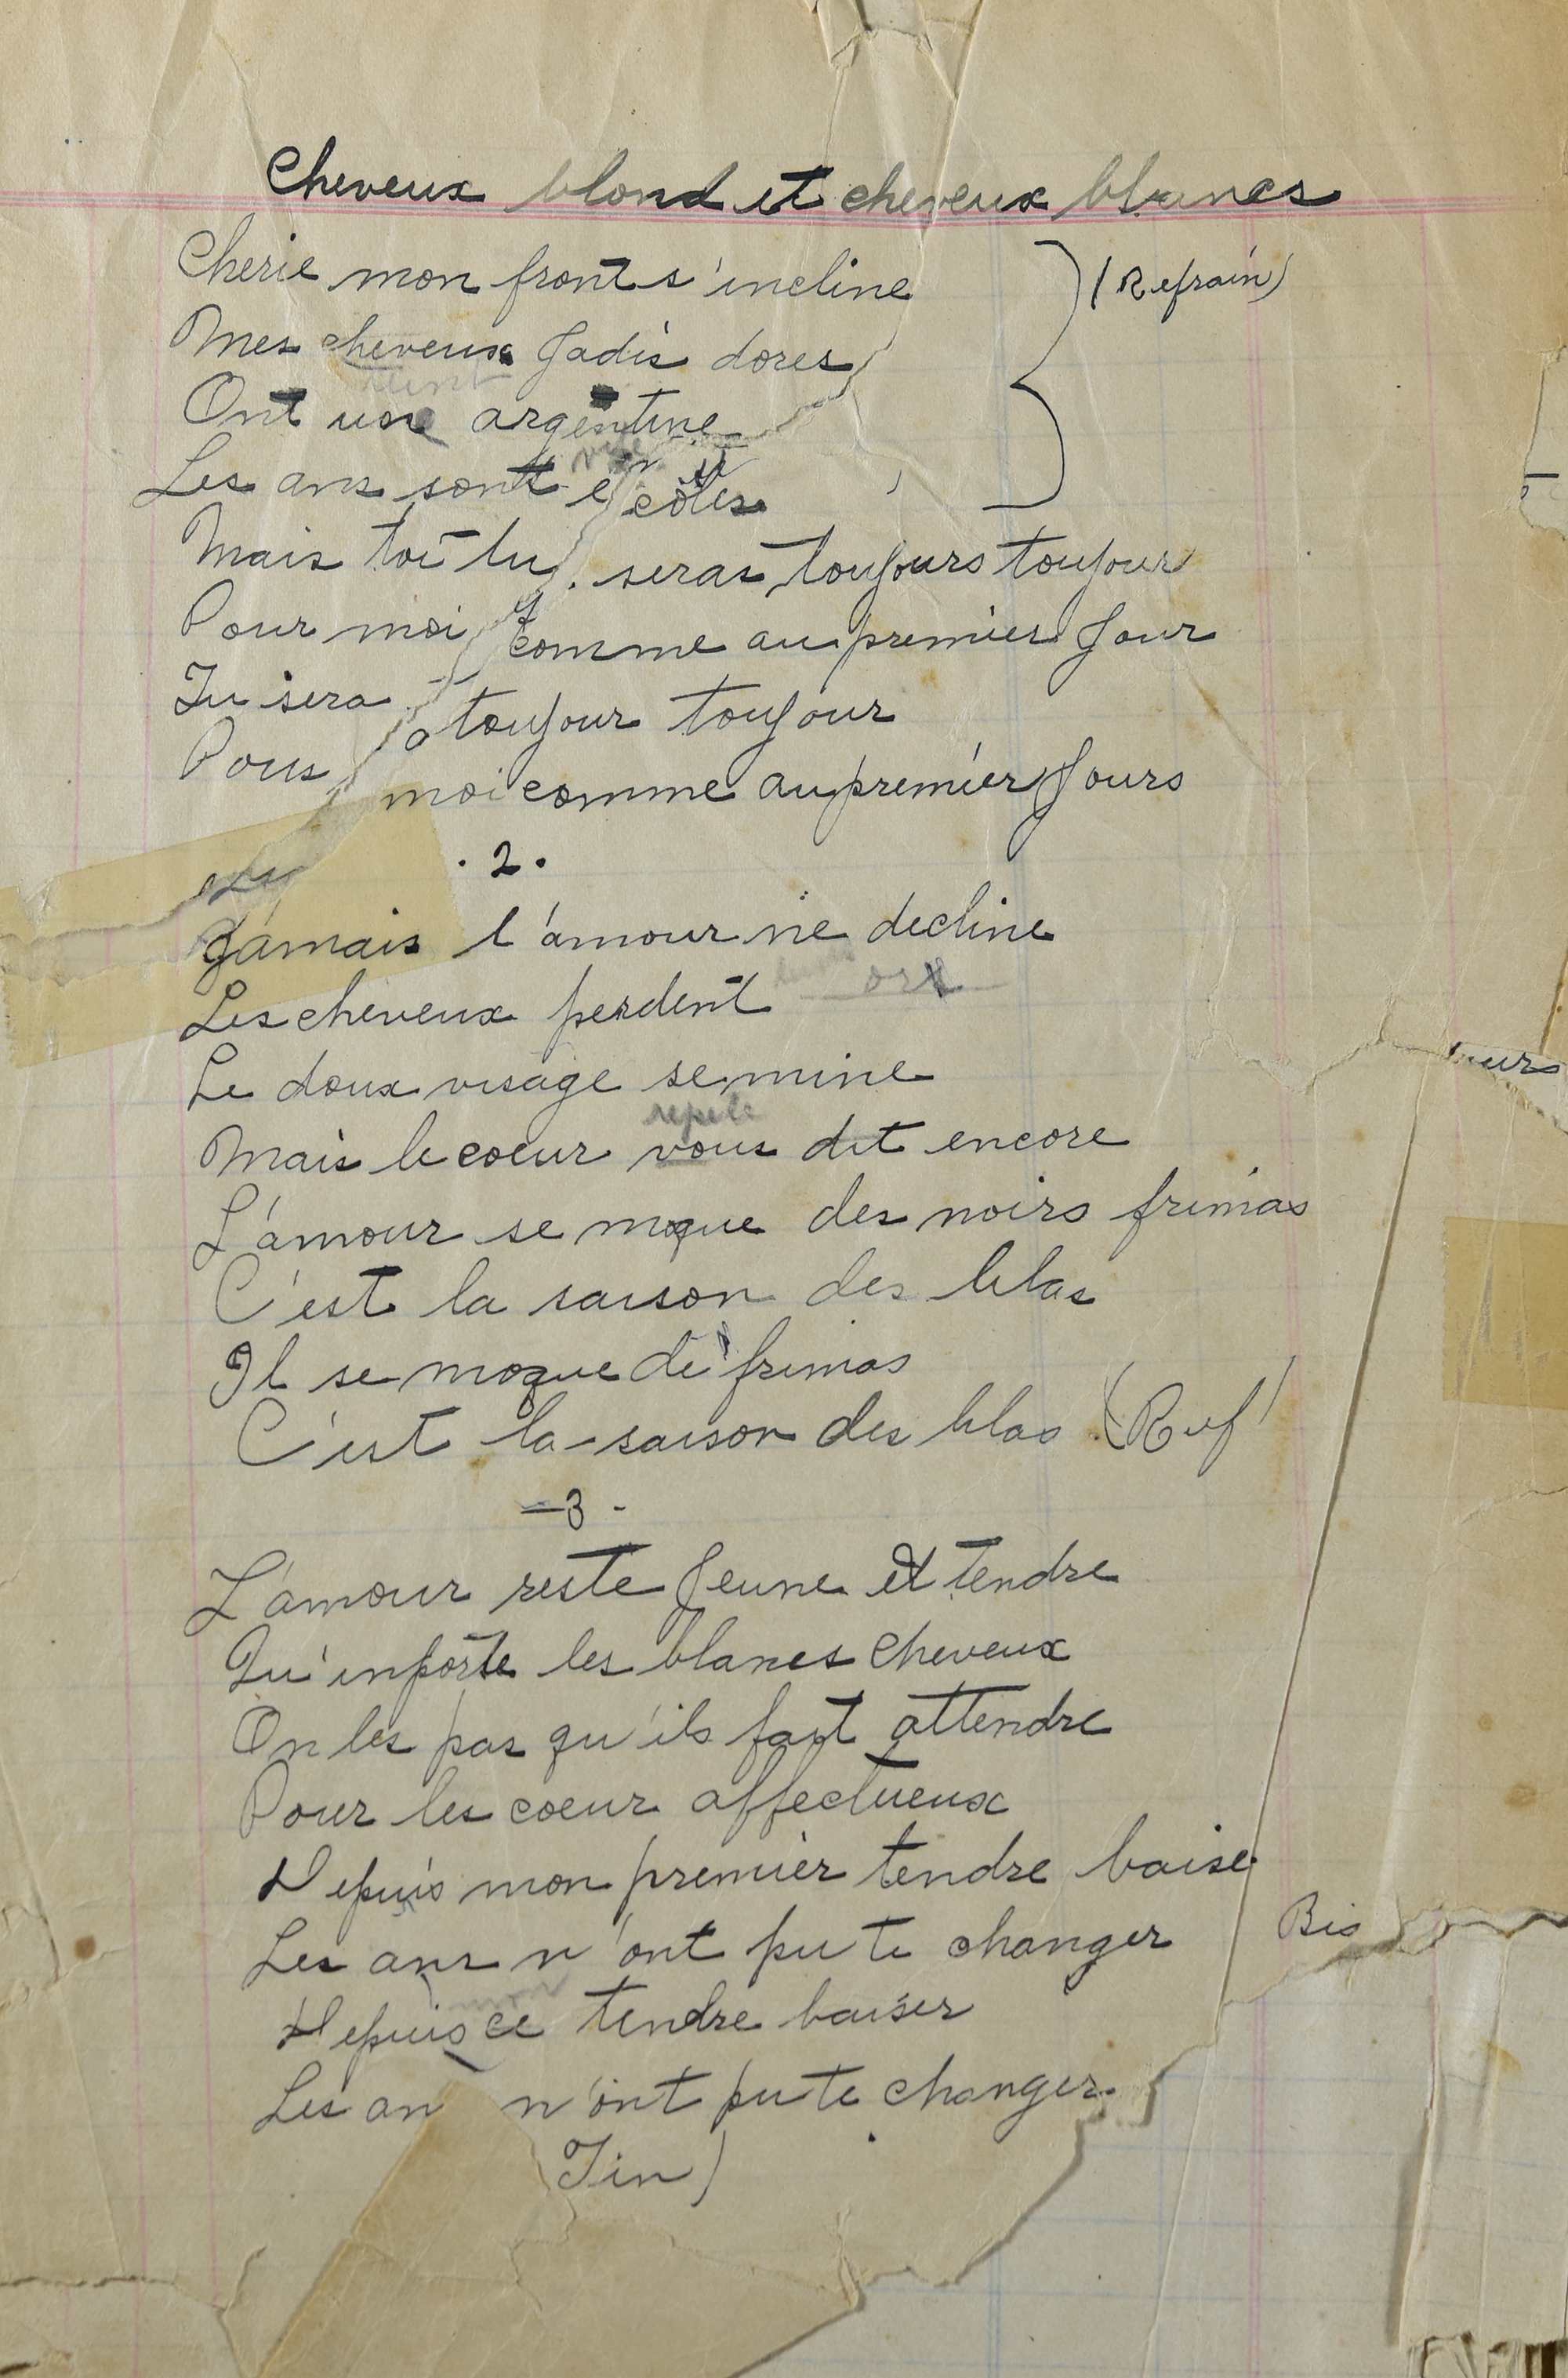 Cheveux blond et cheveux blancs
Cherie mon front s'incline (Refrain)
Mes cheveux Jadis dores
Ont une argentine
Les ans sont é coles
Mais toi tu seras toujours toujour
Pour moi comme au premier Jour
Tu sera toujour toujour
Pour moi comme au premier Jours
. 2 .
Jamais l'amour ne decline
Les cheveux perdent ors
Le doux visage se mine
repete
Mais le coeur vous dit encore
L'amour se moque des noirs frimas
C'est la saison des lilas
Il se moque de frimas
C'est la saison des lilas (Ref)
-3-
L'amour reste Jeune et tendre
Qu'inporte les blancs cheveux
On les pas qu'ils fait attendre
Pour les coeur affectueux
Depuis mon premier tendre baise
Les ans n'ont pu te changer Bis
mon
Depuis ce tendre baiser
Les an n'ont pu te changer
(Fin)